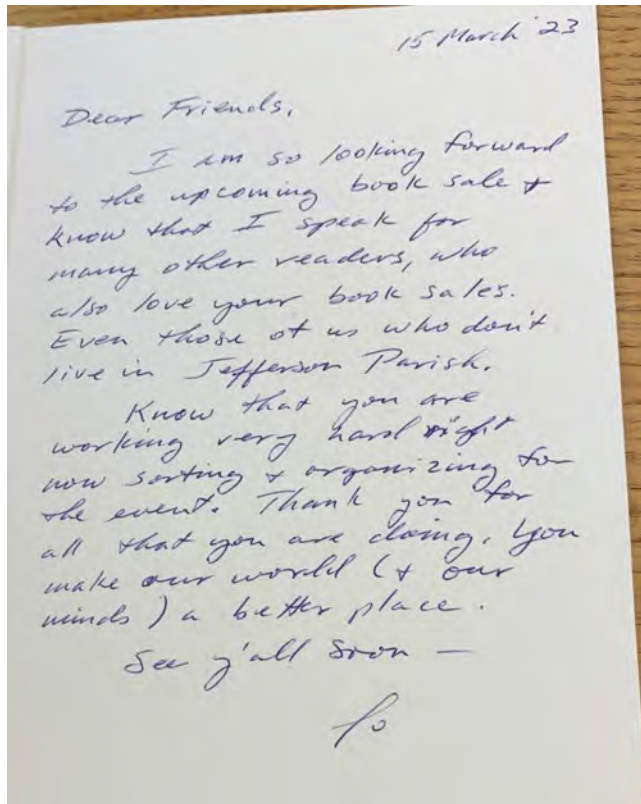 15 March '23
Dear Friends,
I am so looking forward
to the upcoming book sale +
know that I speak for
many other readers, who
also love your book sales.
Even those of us who don't
live in Jefferson Parish.
Know that you are
working very hard right
now sorting + organizing for
the event. Thank you for
all that you are doing. You
make our world (+ our
minds) a better place.
See y'all soon —